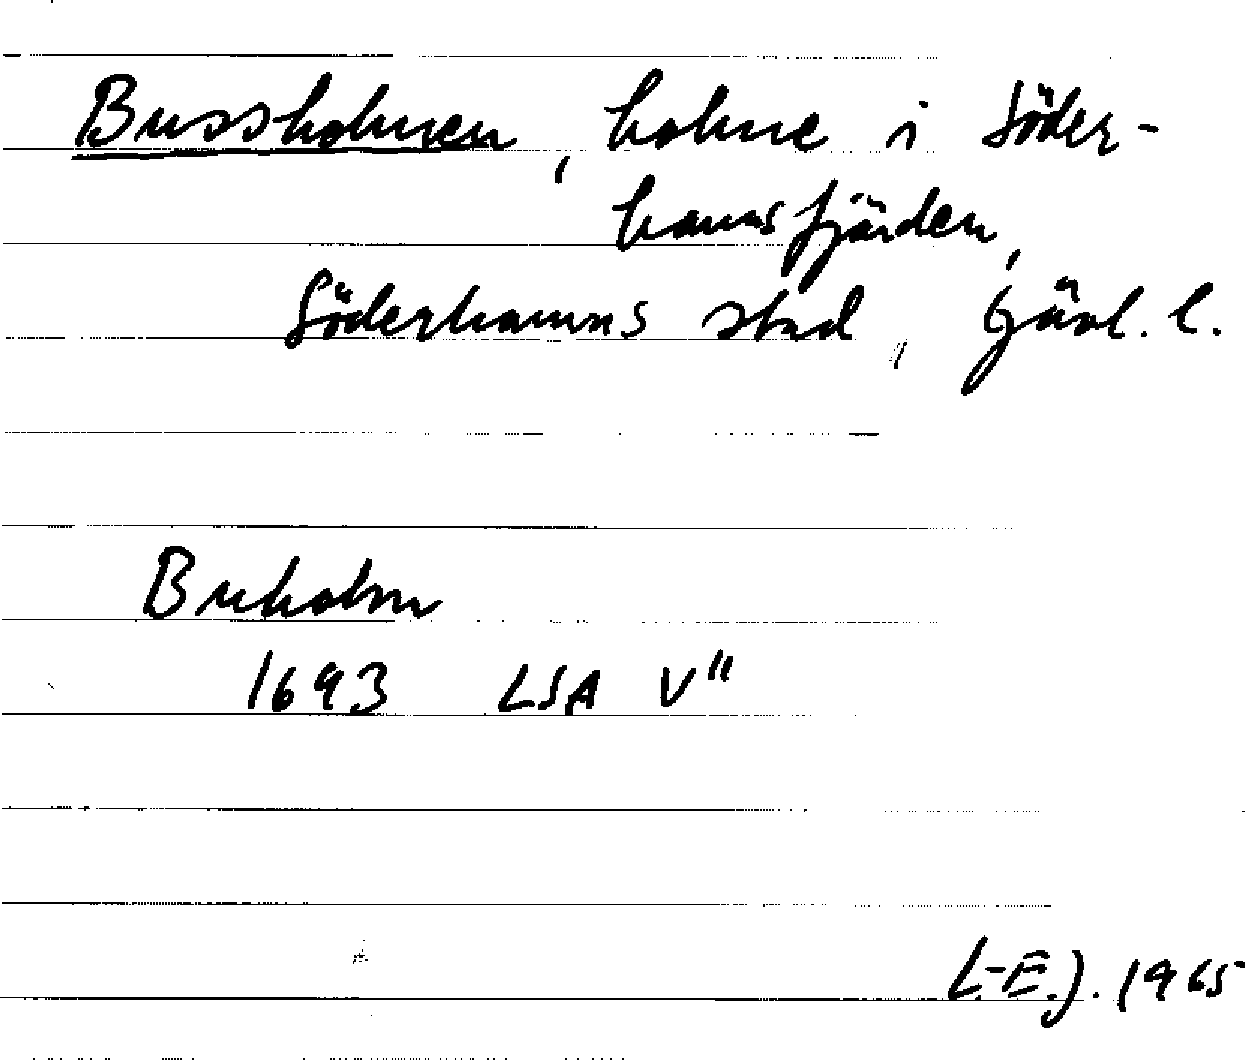 Bussholmen, holme i Söder-
hamnsfjärden,
Söderhamns stad, Gävl. l.
Buholm
1693 LSA V"
L-E.J. 1965